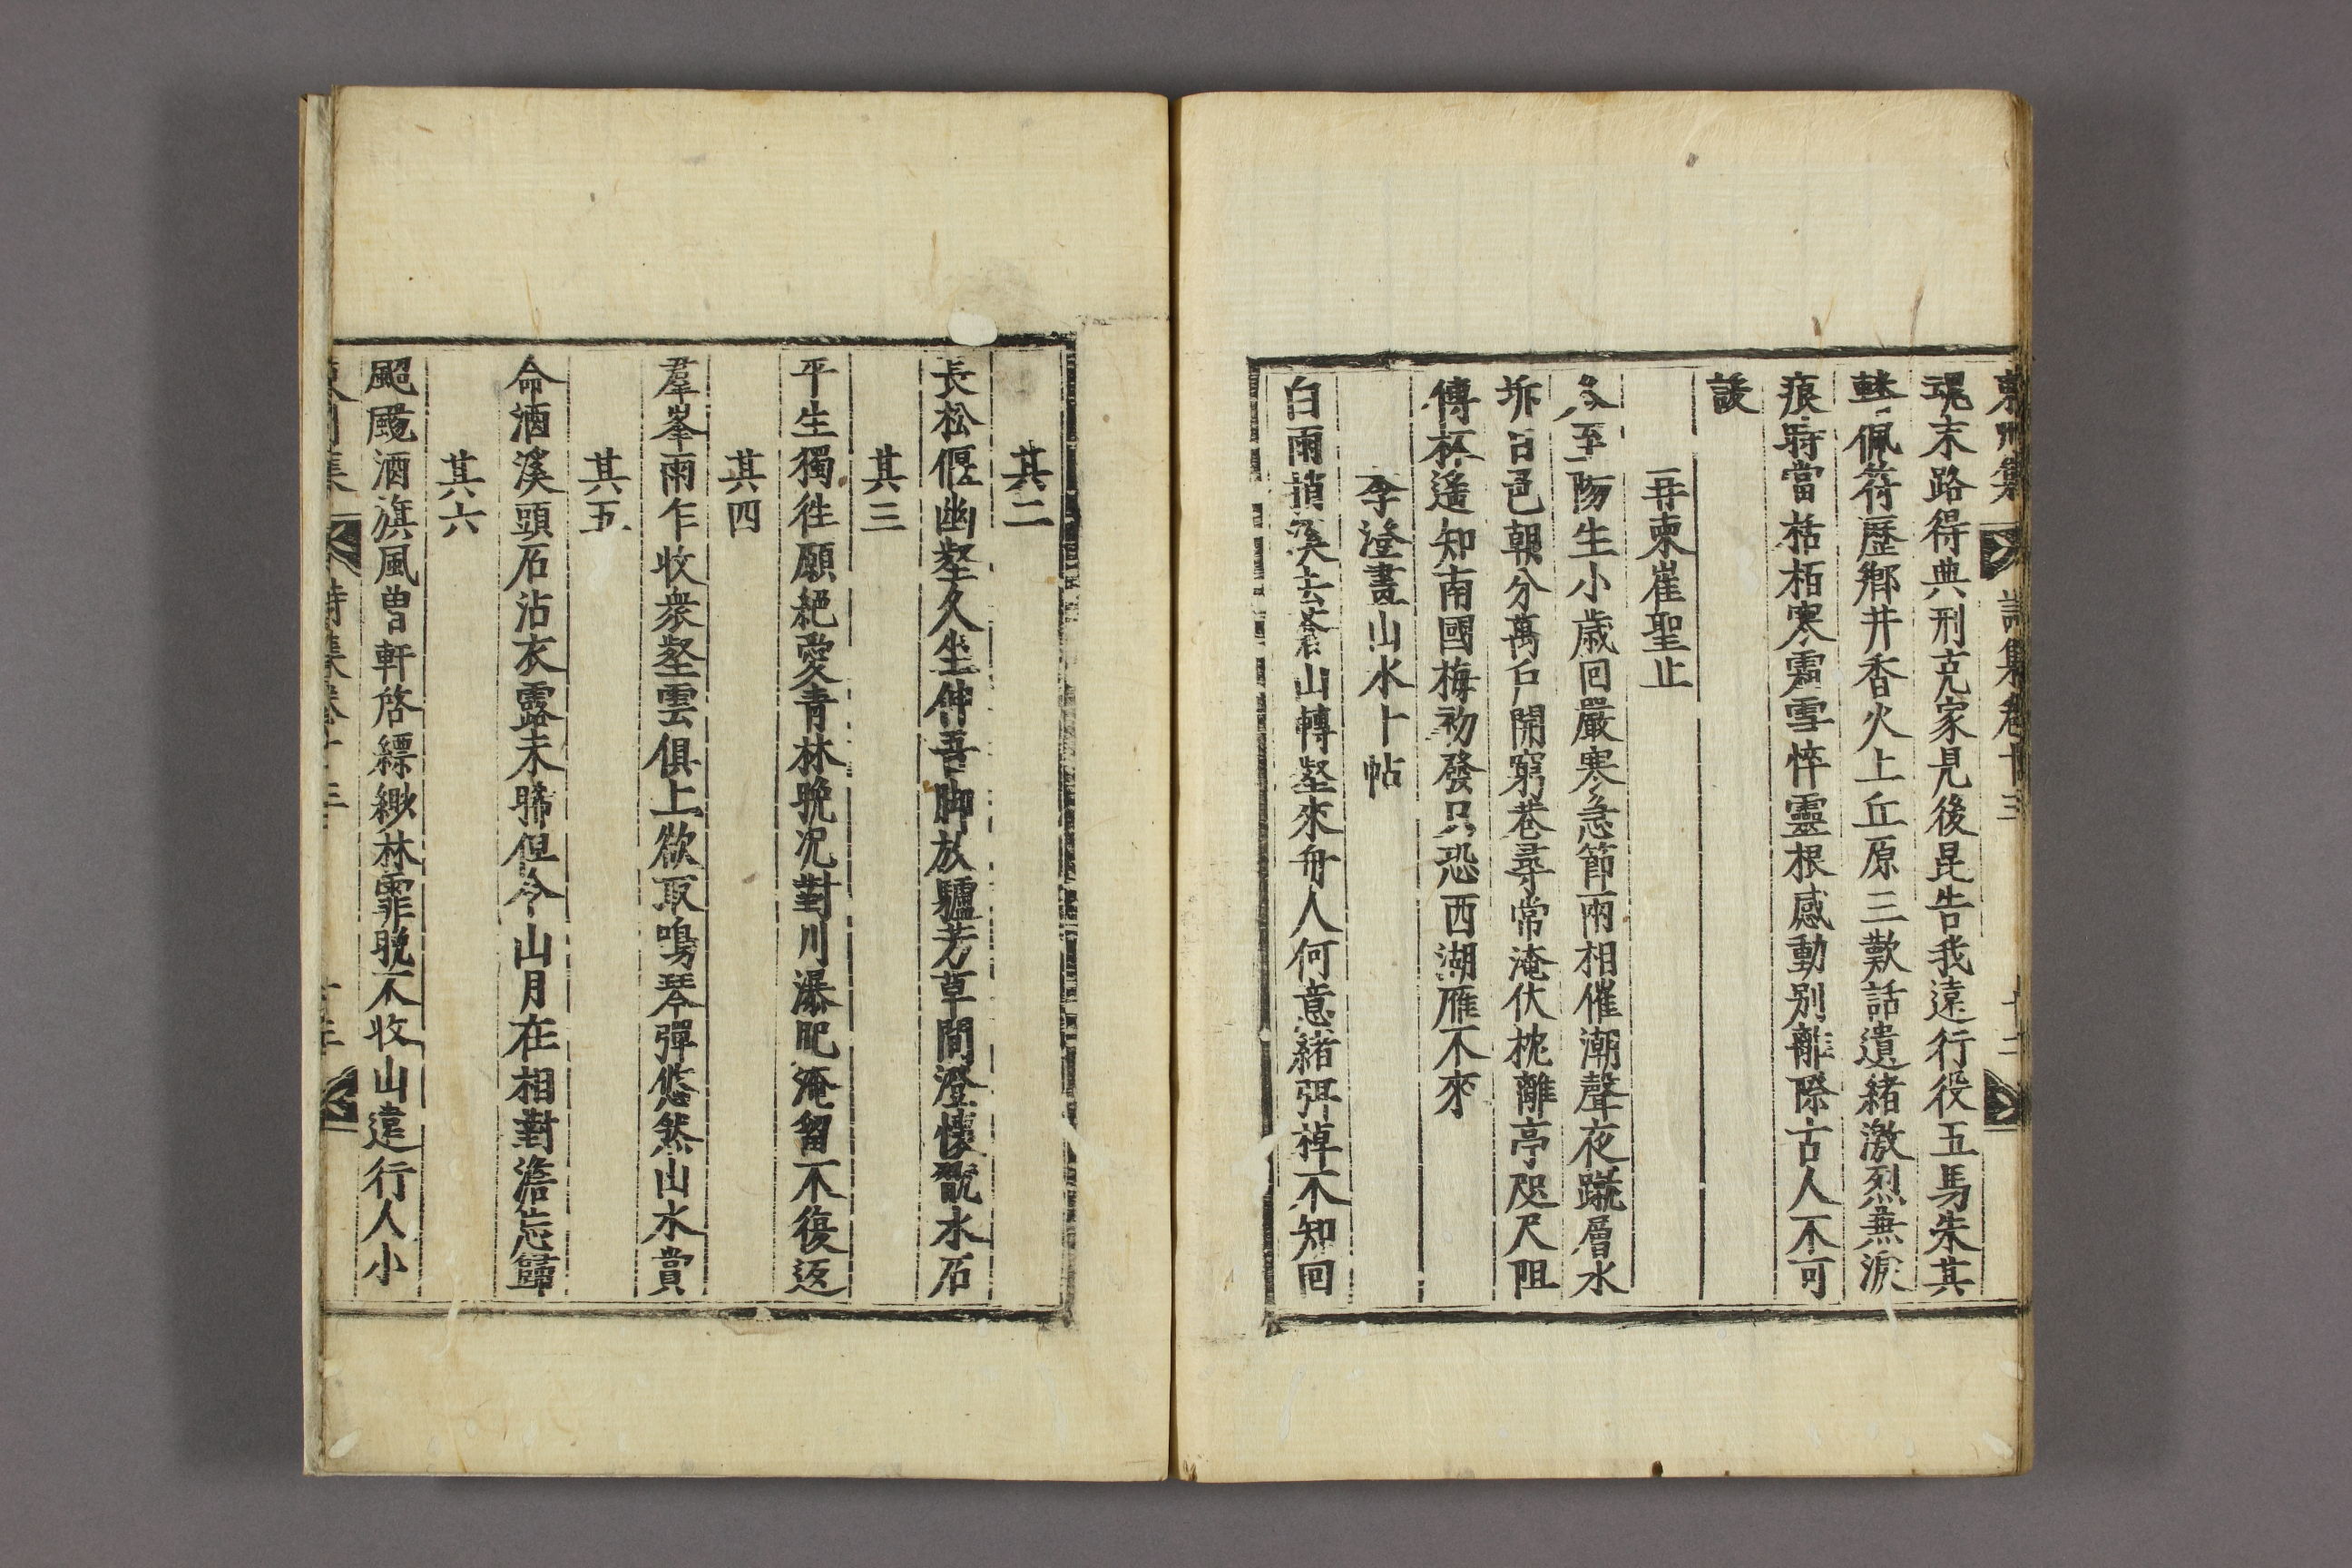 東州集 詩集卷十三 十二
魂末路得典刑克家見後昆告我遠行役五馬朱其
轓佩符歷鄉井香火上丘原三歎話遺緖激烈無淚
痕時當栝栢寒霜雪悴靈根感動別離際古人不可
諼
再柬崔聖止
冬至陽生小歲回嚴寒急節兩相催潮聲夜蹴層氷
坼日色朝分萬戶開窮巷尋常淹伏枕離亭咫尺阻
傳杯遙知南國梅初發只恐西湖雁不來
李澄畫山水十帖
白雨捎溪去蒼山轉壑來舟人何意緖弭棹不知回
其二
長松偃幽壑久坐伸吾脚放驢芳草間澄懷翫水石
其三
平生獨往願絕愛靑林晩況對川瀑肥淹留不復返
其四
羣峯雨乍收衆壑雲俱上欲取鳴琴彈悠然山水賞
其五
命酒溪頭石沾衣露未晞但令山月在相對澹忘歸
其六
颭颺酒旗風曾軒啓縹緲林霏晩不收山遠行人小
東州集 詩集卷十三